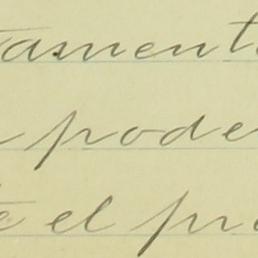 tament
poder
el pre